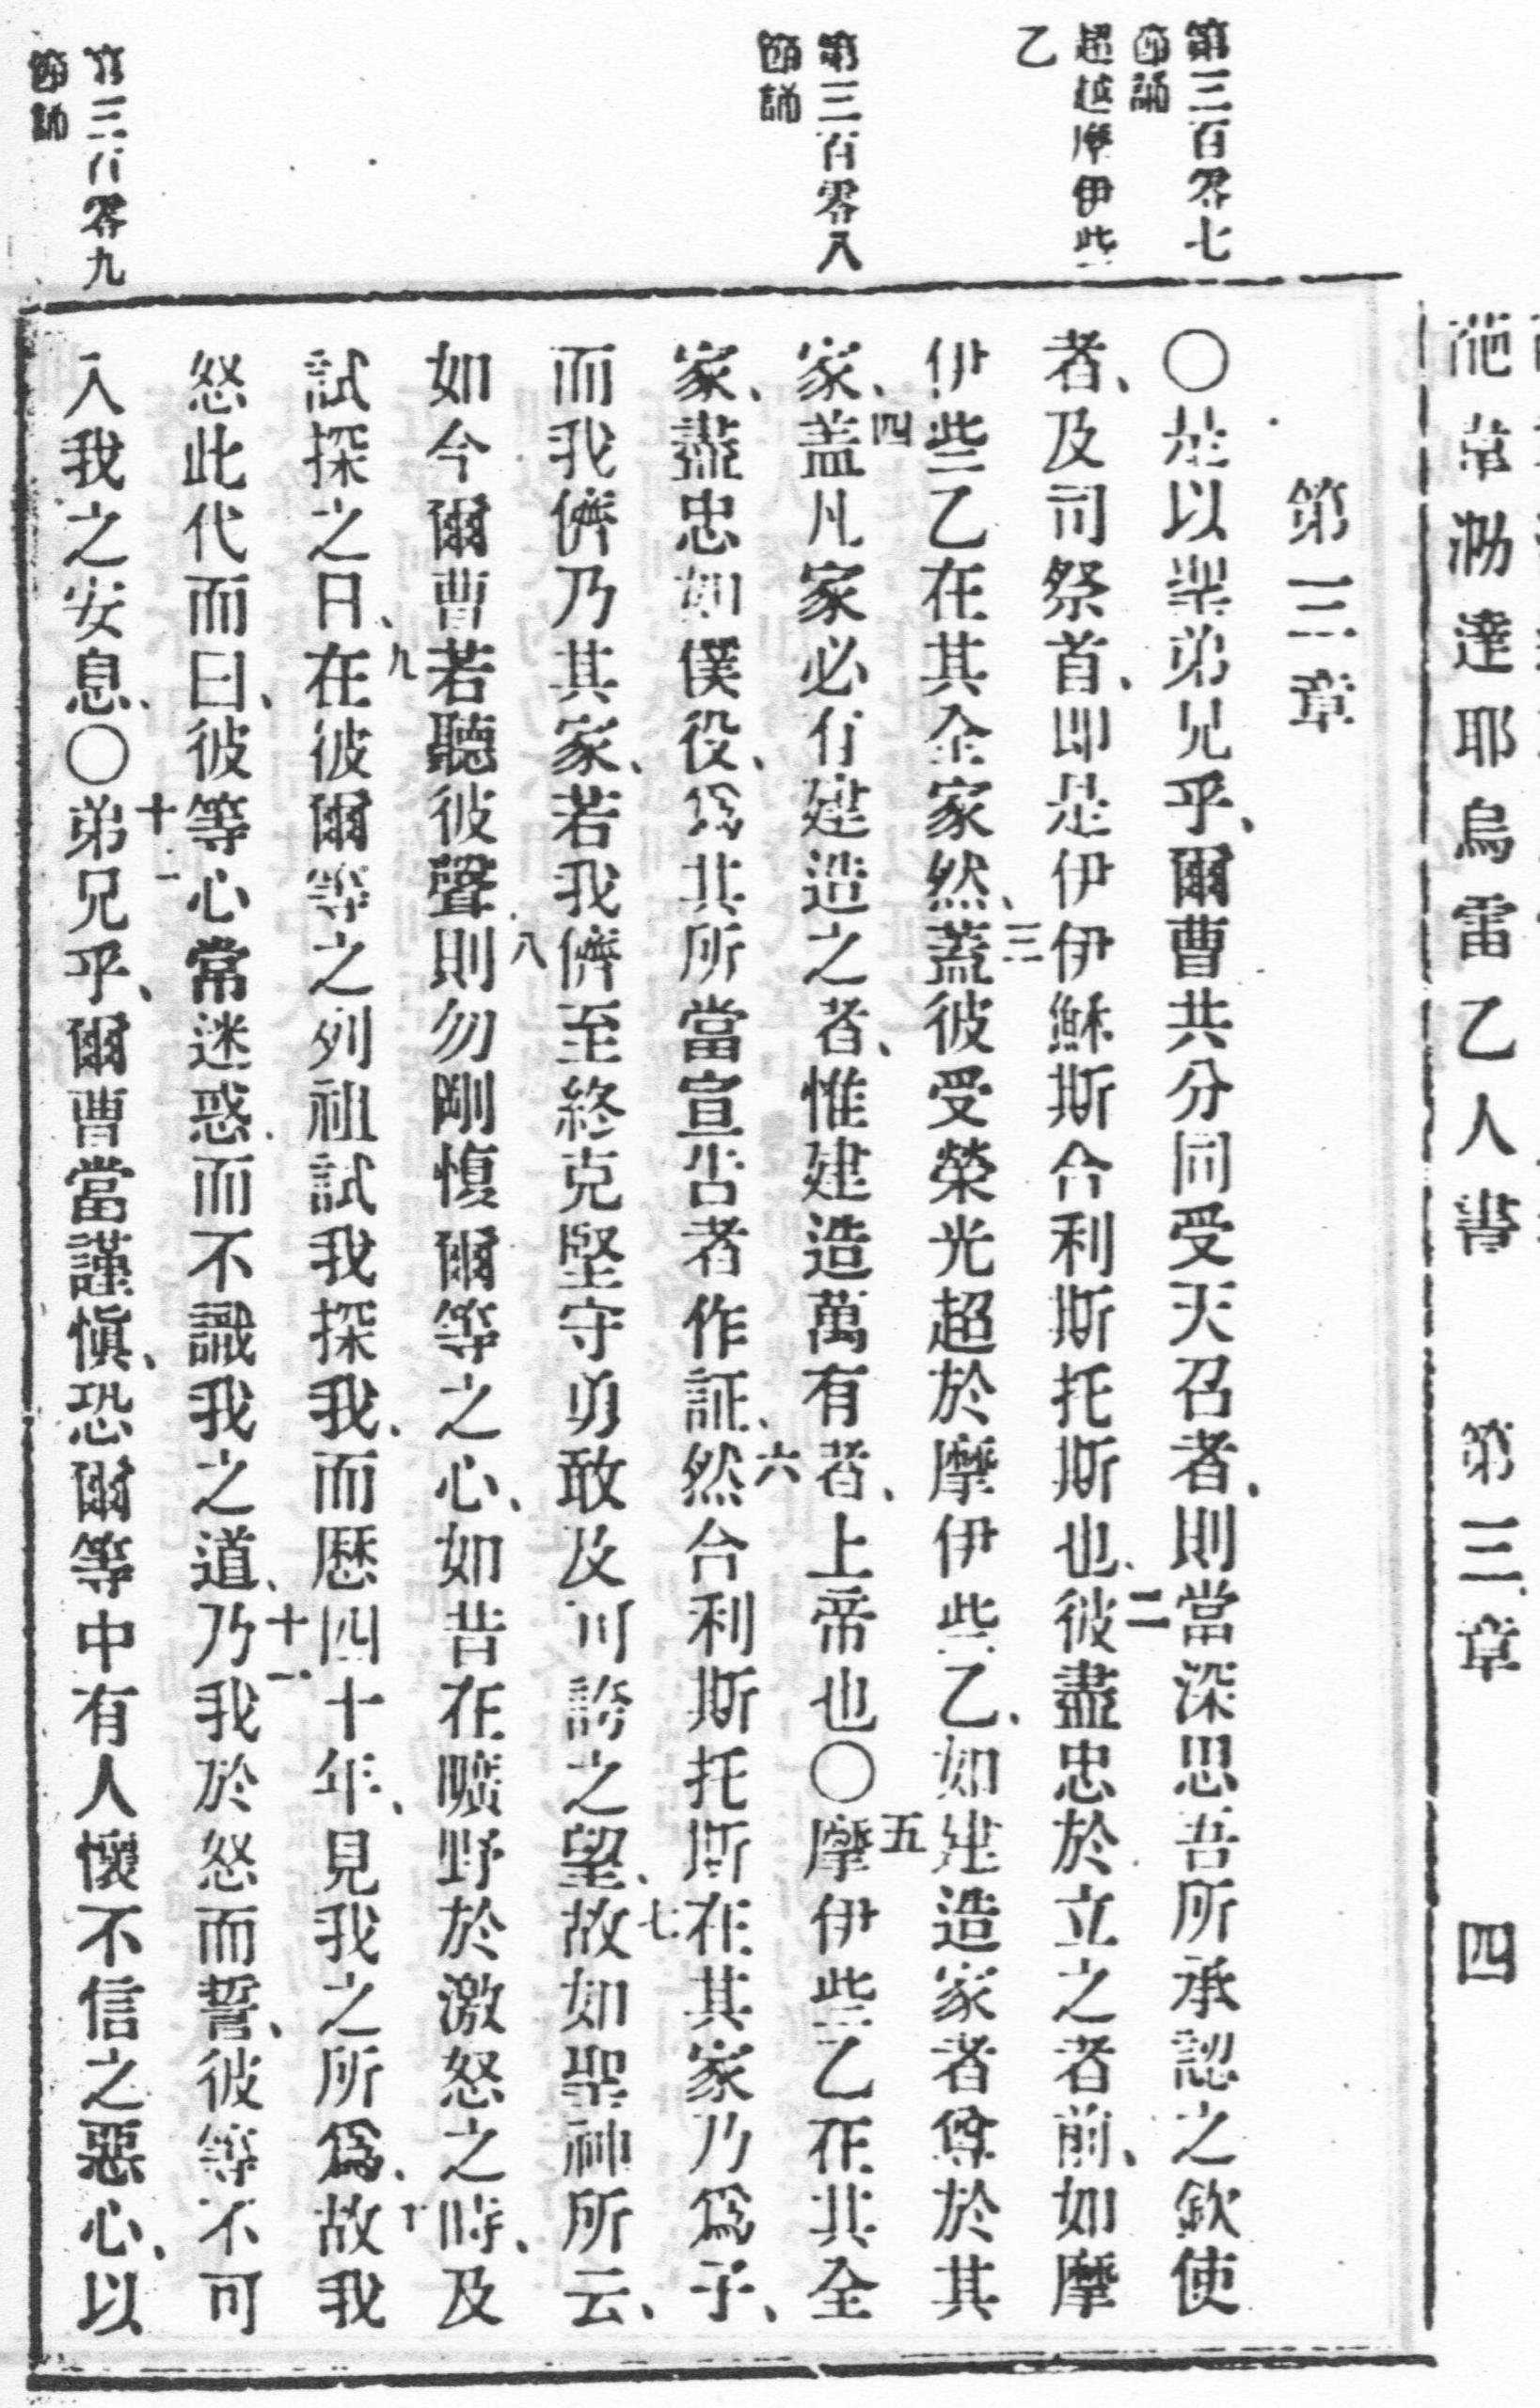 葩韋泐達耶烏雷乙人書 第三章 四
第三百零七
節誦
超越摩伊些
乙
第三百零八
節誦
第三百零九
節誦
第三章
〇是以聖弟兄乎、爾曹共分同受天召者、則當深思吾所承認之欽使
者、及司祭首、即是伊伊穌斯合利斯托斯也、二彼盡忠於立之者前、如摩
伊些乙在其全家然、三蓋彼受榮光超於摩伊些乙、如建造家者尊於其
家、四盖凡家必有建造之者、惟建造萬有者、上帝也〇五摩伊些乙在其全
家、盡忠如僕役、爲其所當宣告者作証、六然合利斯托斯在其家乃爲子、
而我儕乃其家、若我儕至終克堅守勇敢及可誇之望、七故如聖神所云、
如今爾曹若聽彼聲八則勿剛愎爾等之心、如昔在曠野於激怒之時、及
試探之日、九在彼爾等之列祖試我探我、而歷四十年、見我之所爲、十故我
怒此代而曰、彼等心常迷惑而不識我之道、十一乃我於怒而誓、彼等不可
入我之安息、〇十二弟兄乎、爾曹當謹愼、恐爾等中有人懷不信之惡心、以